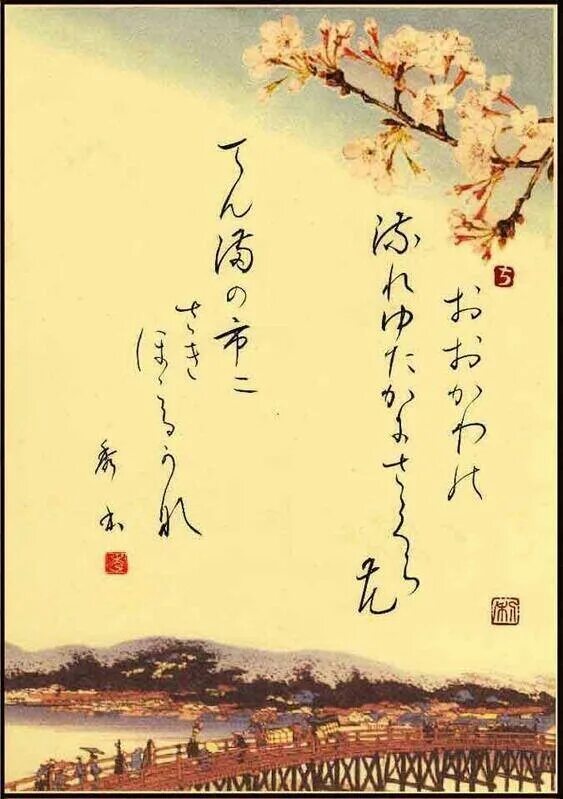 おおかわの
流れゆたかにさくら
花
てん満の市に
さき
ほこるかな